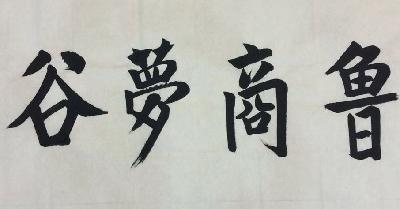 魯商夢谷